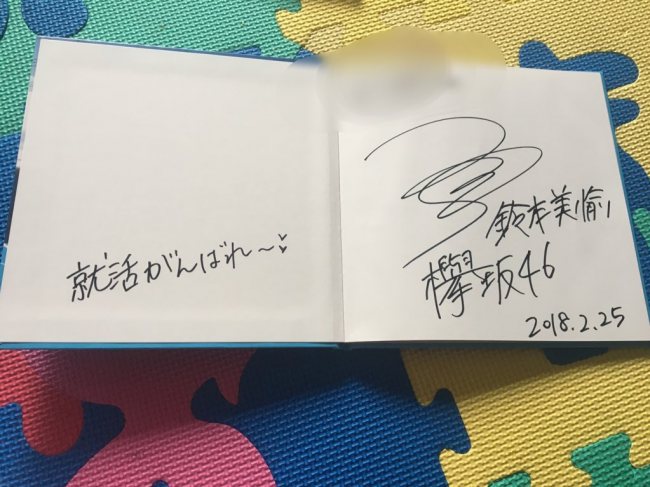 就活がんばれ〜
鈴本美愉
欅坂46
2018.2.25